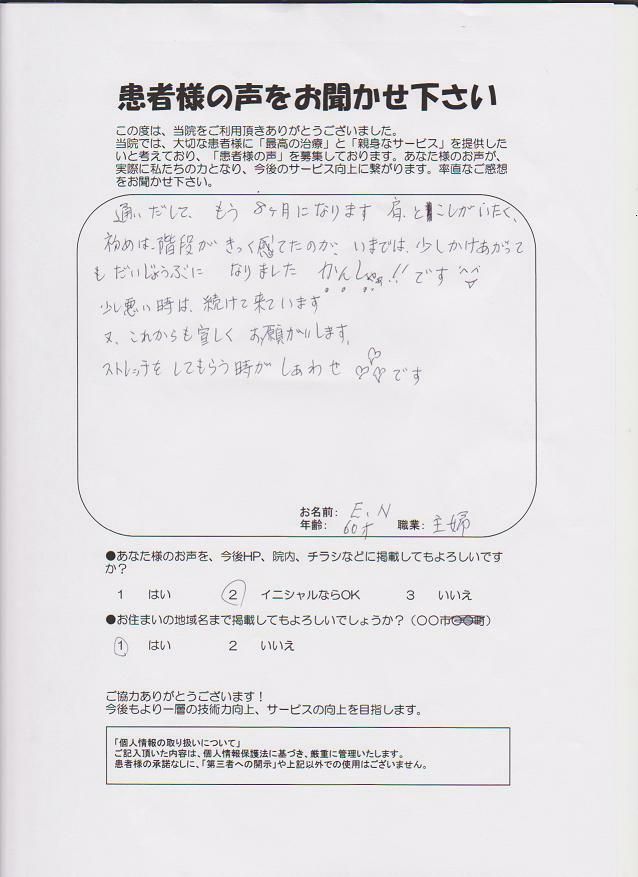 患者様の声をお聞かせ下さい
この度は、当院をご利用頂きありがとうございました。
当院では、大切な患者様に「最高の治療」と「親身なサービス」を提供した
いと考えており、「患者様の声」を募集しております。あなた様のお声が、
実際に私たちの力となり、今後のサービス向上に繋がります。率直なご感想
をお聞かせ下さい。
通いだして、もう8ヶ月になります 肩、と こしがいたく、
初めは、階段がきつく感てたのが、いまでは、少しかけあがって
もだいじょうぶに なりました かんしゃ!!です
少し悪い時は、続けて来ています
又、これからも宜しく お願がいします。
ストレッチをしてもらう時が しあわせ ♡♡♡です
お名前: E、N
年齢: 60才 職業: 主婦
●あなた様のお声を、今後HP、院内、チラシなどに掲載してもよろしいです
か?
1 はい 2 イニシャルならOK 3 いいえ
●お住まいの地域名まで掲載してもよろしいでしょうか?(〇〇市〇〇町)
1 はい 2 いいえ
ご協力ありがとうございます!
今後もより一層の技術力向上、サービスの向上を目指します。
「個人情報の取り扱いについて」
ご記入頂いた内容は、個人情報保護法に基づき、厳重に管理いたします。
患者様の承諾なしに、「第三者への開示」や上記以外での使用はございません。